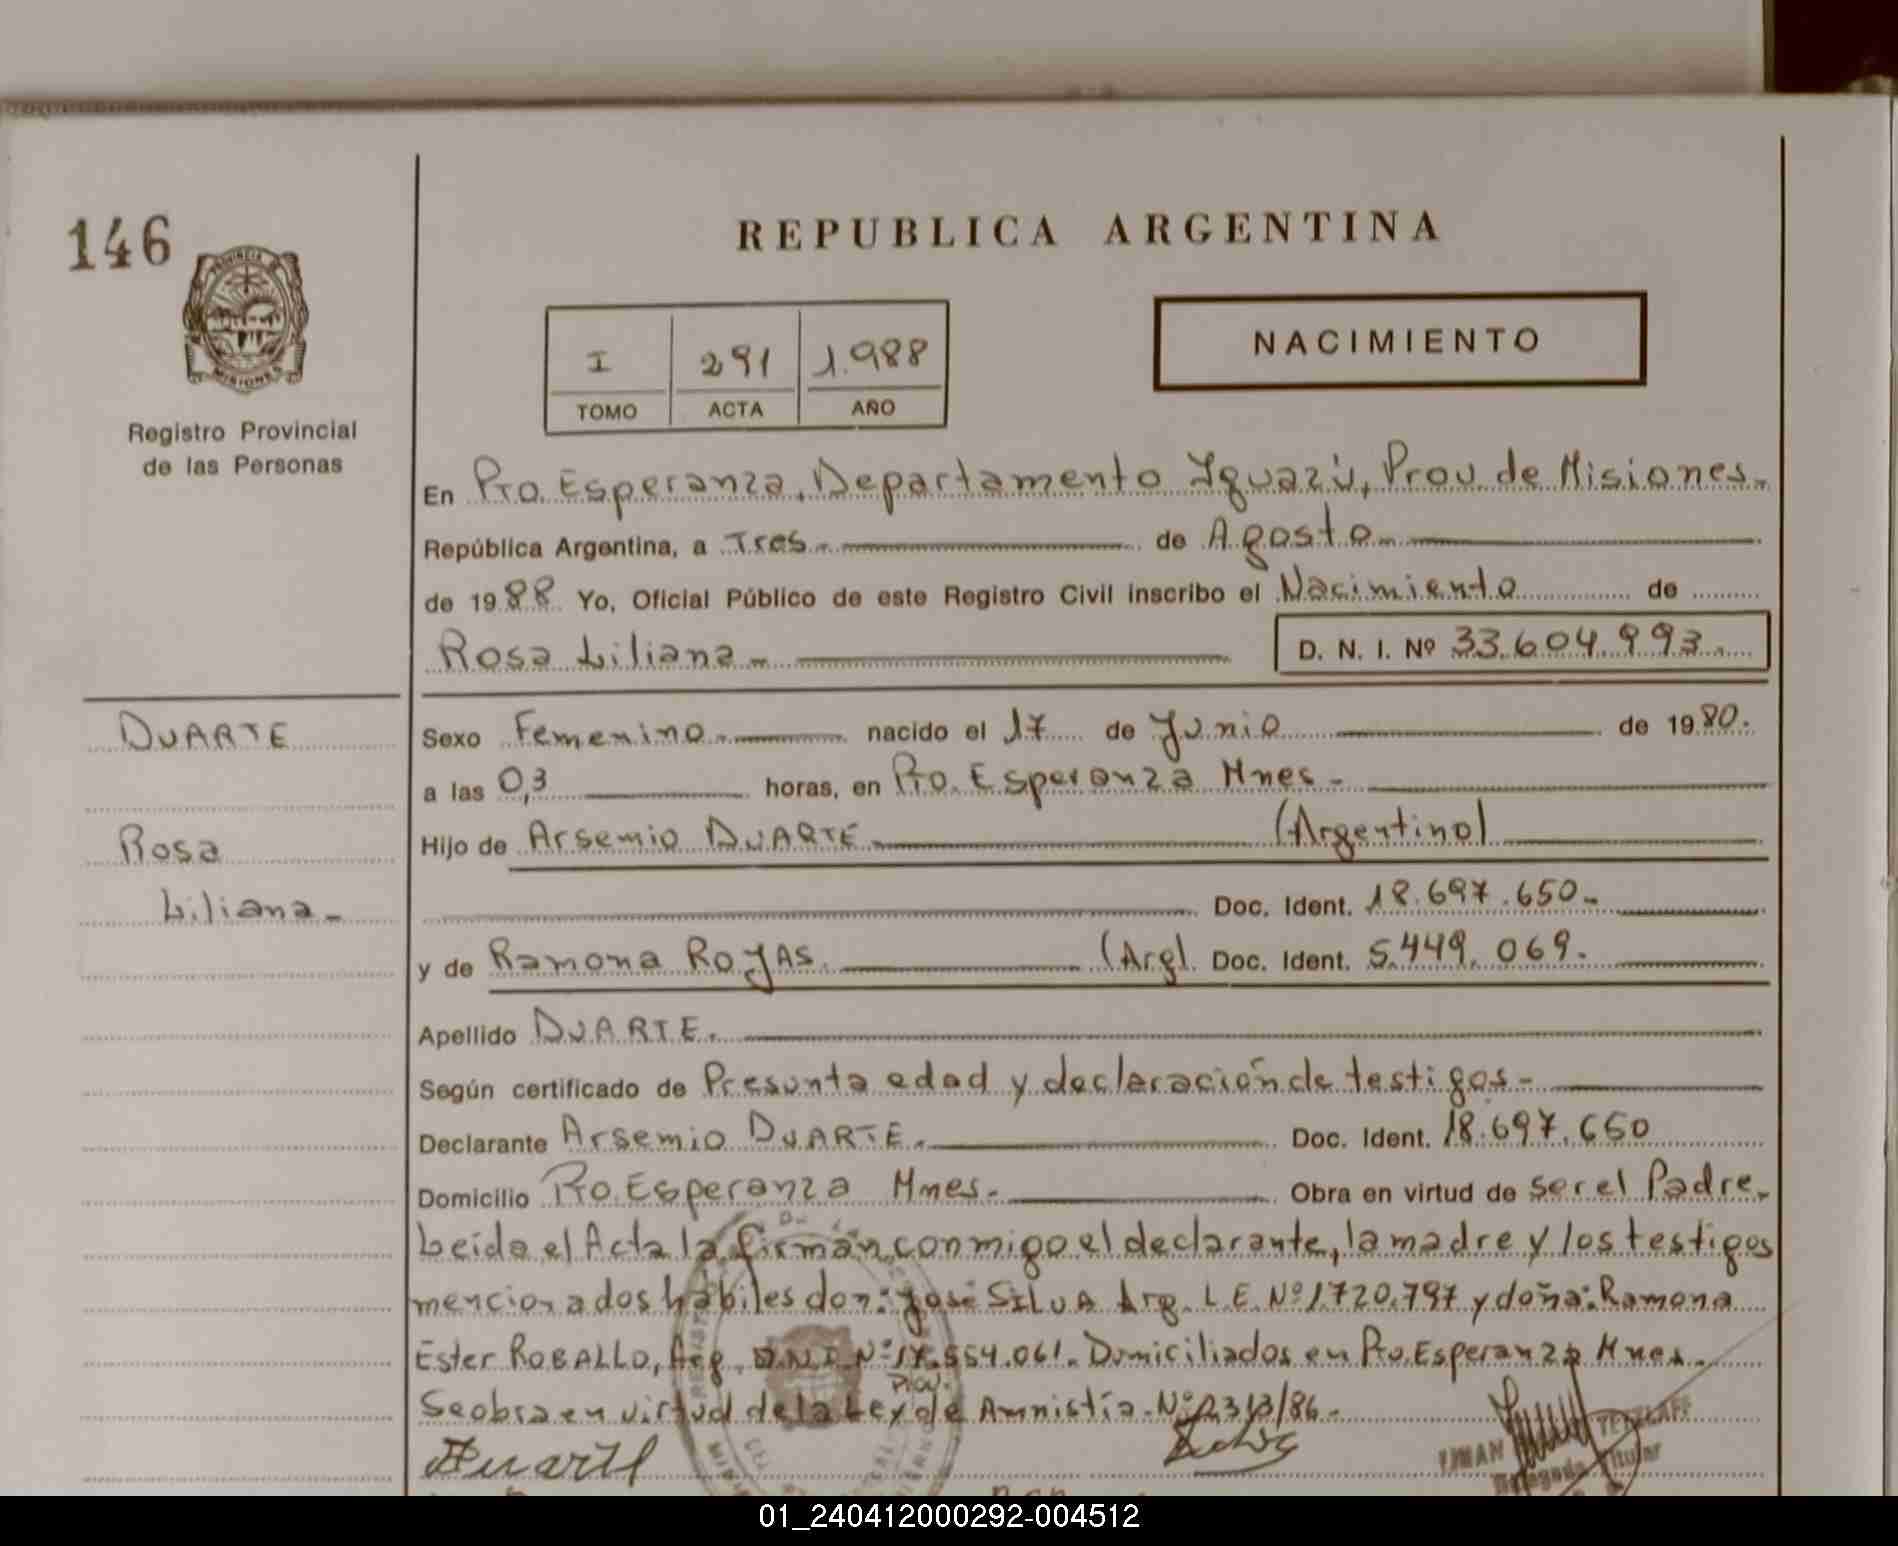 146
PROVINCIA DE
MISIONES
Registro Provincial
de las Personas
REPUBLICA ARGENTINA
I 291 1.988
TOMO ACTA AÑO
NACIMIENTO
En Pto. Esperanza, Departamento Iguazú, Prov. de Misiones.
República Argentina, a Tres. de Agosto
de 1988 Yo, Oficial Público de este Registro Civil inscribo el Nacimiento de
Rosa Liliana D. N. I. Nº 33.604.993.
DUARTE
Rosa
Liliana
Sexo Femenino nacido el 17 de Junio de 1980.
a las 0,3 horas, en Pto. Esperanza Mnes.
Hijo de Arsemio DUARTE (Argentino)
Doc. Ident. 18.697.650.
y de Ramona ROJAS. (Arg). Doc. Ident. 5.449.069.
Apellido DUARTE.
Según certificado de Presunta edad y declaración de testigos
Declarante Arsemio DUARTE. Doc. Ident. 18.697.650
Domicilio Pto. Esperanza Mnes. Obra en virtud de ser el Padre.
Leida el Acta la firman conmigo el declarante, la madre y los testigos
mencionados hábiles don: José SILVA Arg. L.E. Nº 1.720.797 y doña: Ramona
Ester ROBALLO, Arg. D.N.I. Nº 17.554.061. Domiciliados en Pto. Esperanza Mnes.
Prov.
Se obra en virtud de la Ley de Amnistía. Nº 2313/86.
Duarte
TETZLAFF
Delegado Titular
01_240412000292-004512